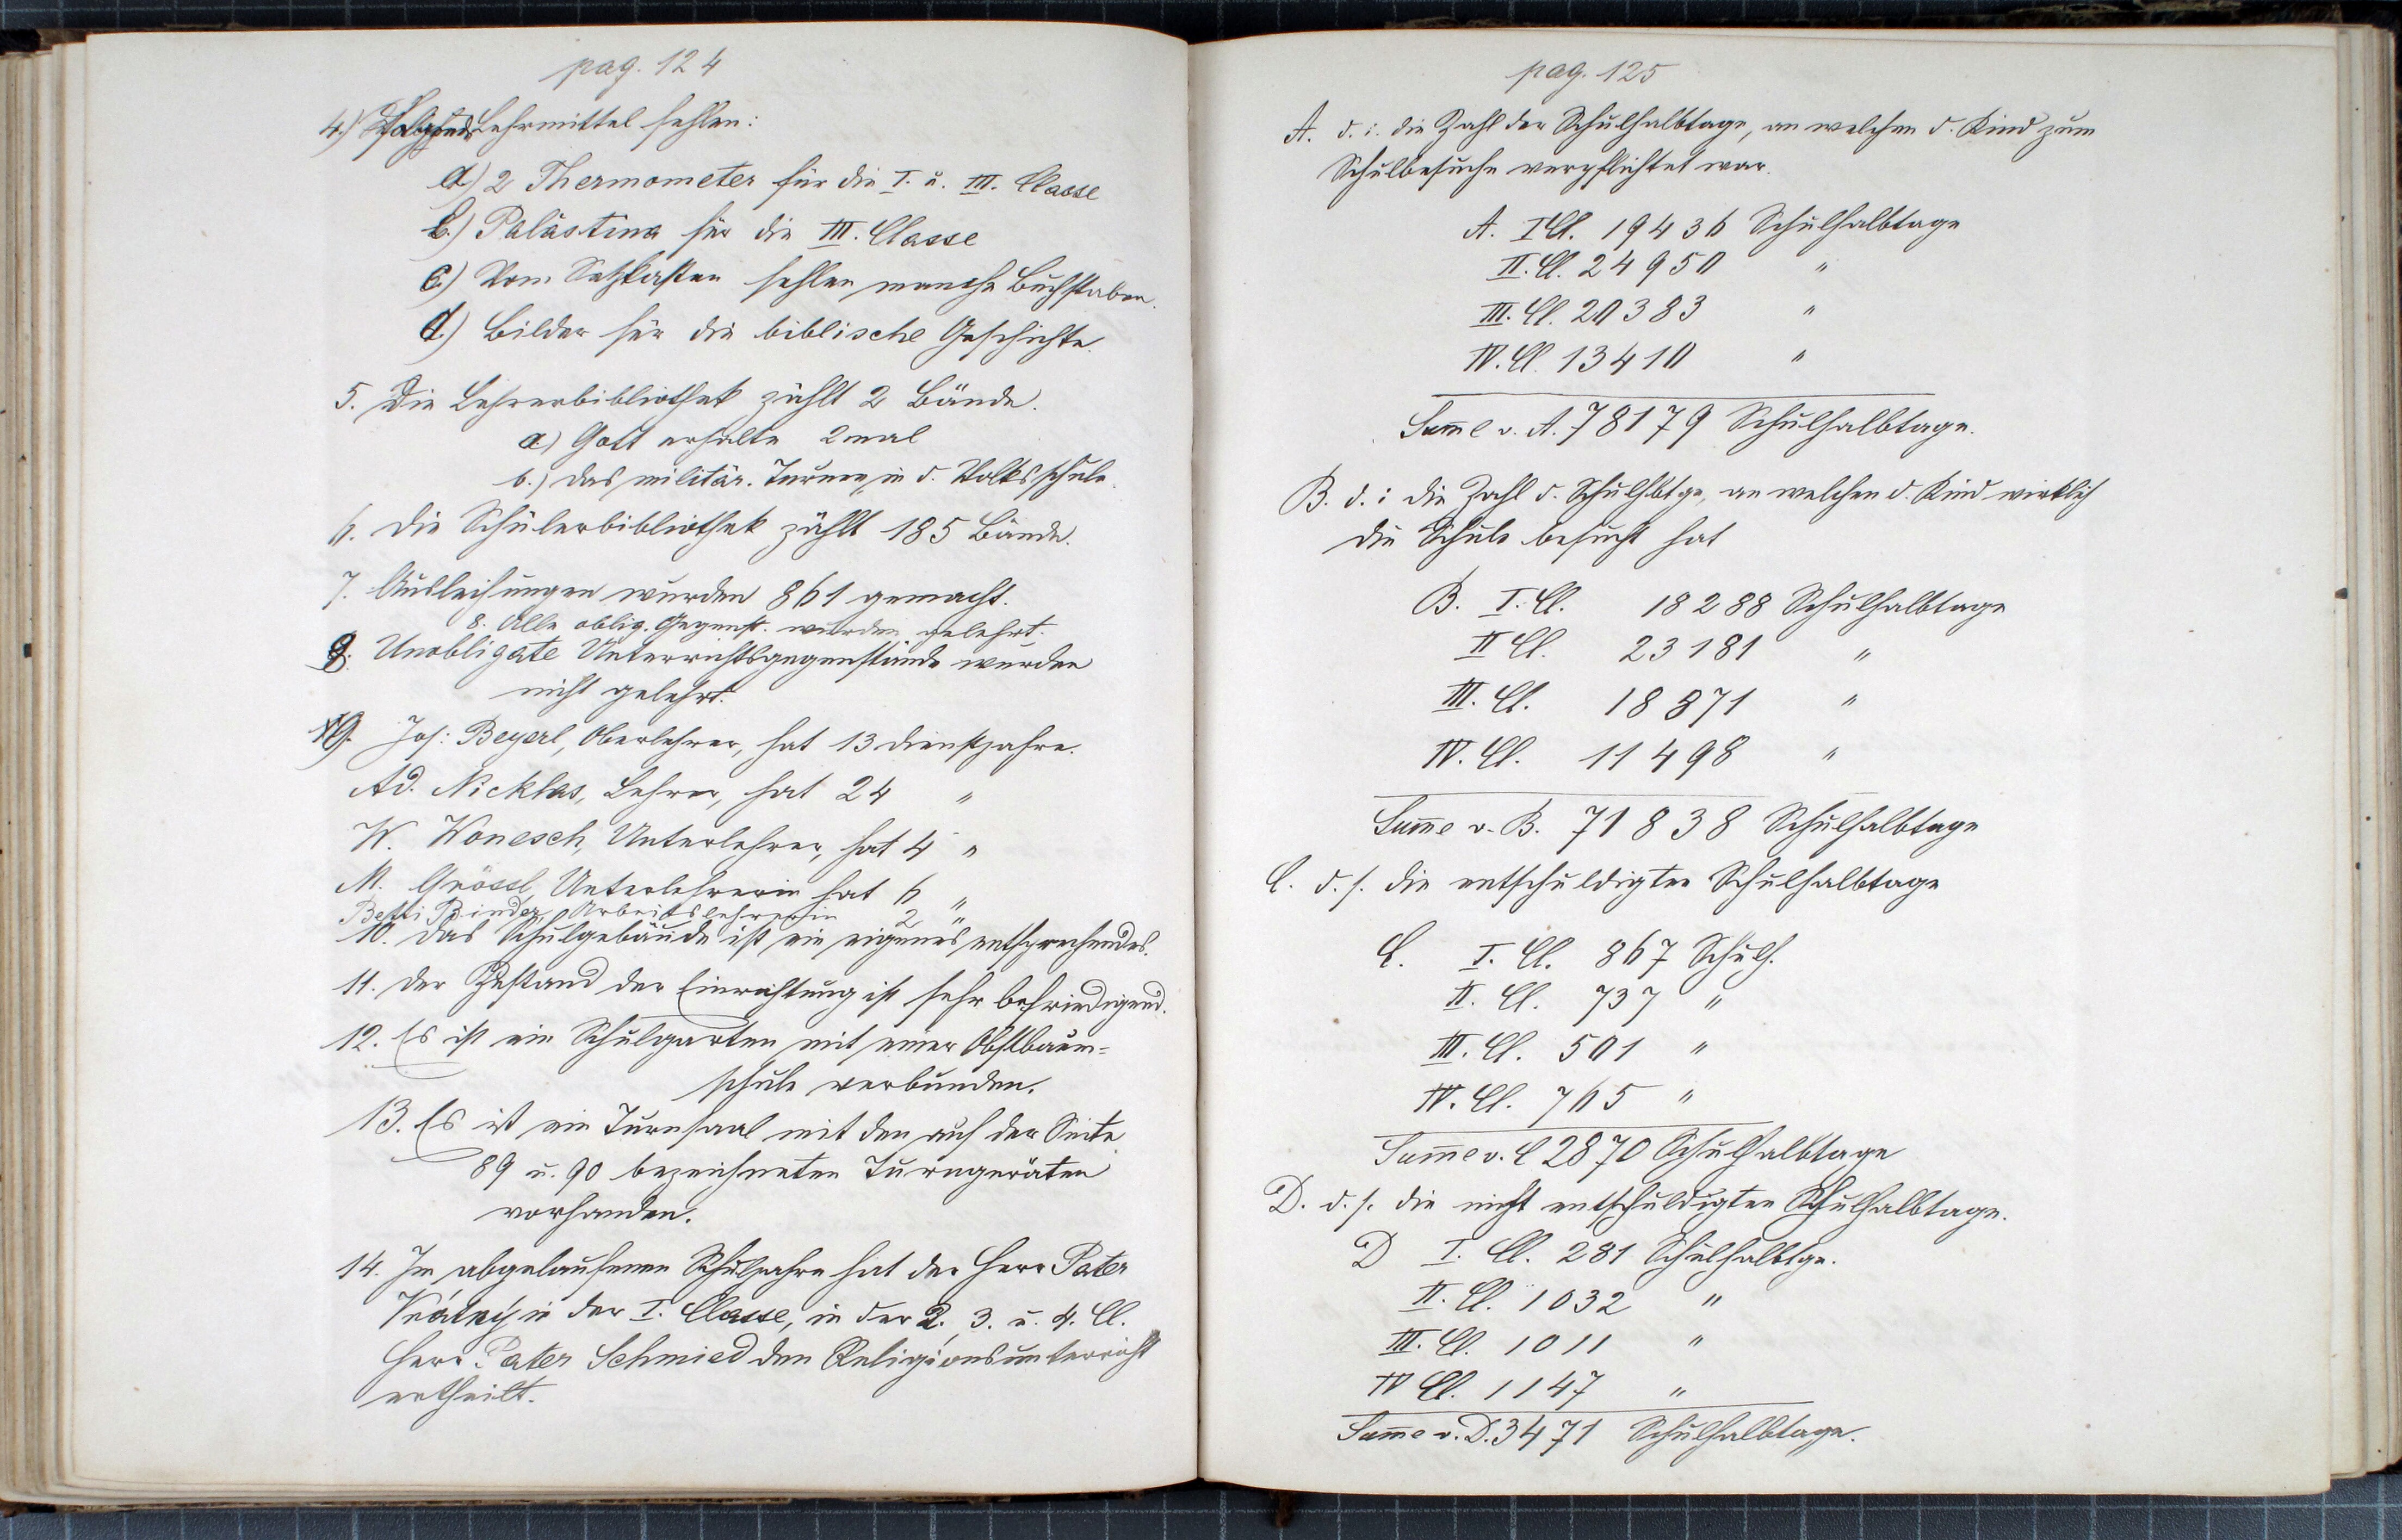 pag. 124
4.) Folgende Lehrmittel fehlen:
a.) 2 Thermometer für die I. u. III. Classe
b.) Palästina für die III. Classe
c.) Vom Setzkasten fehlen manche Buchstaben.
d.) Bilder für die biblische Geschichte.
5. Die Lehrerbibliothek zählt 2 Bände.
a.) Gott erhalte 2mal
b.) Das militär. Turnen in d. Volksschule.
6. Die Schülerbibliothek zählt 185 Bände.
7. Ausleihungen wurden 861 gemacht.
8. Alle oblig. Gegenst. wurden gelehrt.
8. Unobligate Unterrichtsgegenstände wurden
nicht gelehrt.
9. Jos: Beyerl, Oberlehrer, hat 13 Dienstjahre.
Ad. Nicklas, Lehrer, hat 24 "
W. Wonesch, Unterlehrer, hat 4 "
M. Grössl, Unterlehrerin hat 6 "
Betti Binder, Arbeitslehrerin 2 "
10. Das Schulgebäude ist ein eigenes entsprechendes.
11. Der Zustand der Einrichtung ist sehr befriedigend.
12. Es ist ein Schulgarten mit einer Obstbaum-
schule verbunden.
13. Es ist ein Turnsaal mit den auf der Seite
89 u. 90 bezeichneten Turngeräten
vorhanden.
14. Im abgelaufenen Schuljahre hat der Herr Pater
Krátký in der I. Classe, in der 2. 3. u. 4. Cl.
Herr Pater Schmied den Religionsunterricht
ertheilt.
pag. 125
A. d. i. die Zahl der Schulhalbtage, an welchen d. Kind zum
Schulbesuche verpflichtet war.
A. I Cl. 19436 Schulhalbtage
II. Cl. 24950 "
III. Cl. 20383 "
IV. Cl. 13410 "
Sum̅e v. A. 78179 Schulhalbtage.
B. d. i: die Zahl d. Schulhlbtge, an welchen d. Kind wirklich
die Schule besucht hat
B. I. Cl. 18288 Schulhalbtage
II Cl. 23181 "
III. Cl. 18871 "
IV. Cl. 11498 "
Sum̅e v. B. 71838 Schulhalbtage
C. d. s. die entschuldigten Schulhalbtage
C. I. Cl. 867 Schulh.
II. Cl. 737 "
III. Cl. 501 "
IV. Cl. 765 "
Sum̅e v. C 2870 Schulhalbtage
D. d. s. die nicht entschuldigten Schulhalbtage.
D I. Cl. 281 Schulhalbtge.
II. Cl. 1032 "
III. Cl. 1011 "
IV Cl. 1147 "
Sum̅e v. D. 3471 Schulhalbtage.